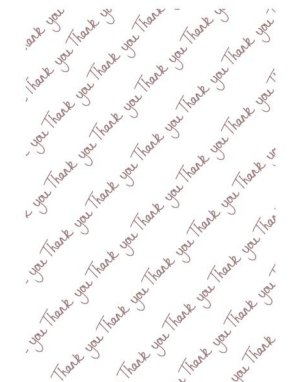 ank you
Thank you Th
you Thank you Thank you Thank
you Thank you Thank you Thank you
you Thank you Thank you Thank you Thank you
you Thank you Thank you Thank you Thank you
you Thank you Thank you Thank you Thank yo
Thank you Thank you Thank you Than
Thank you Thank you
you Thank